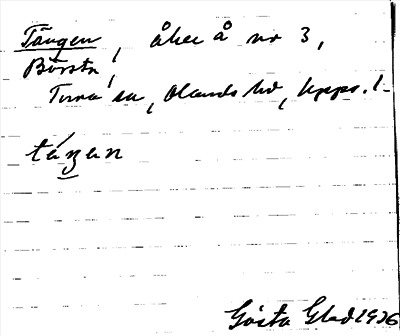 Tången, åker å nr 3,
Börsta,
Tuna sn, Olands hd, Upps. l.
táŋan
Gösta Glad 1926